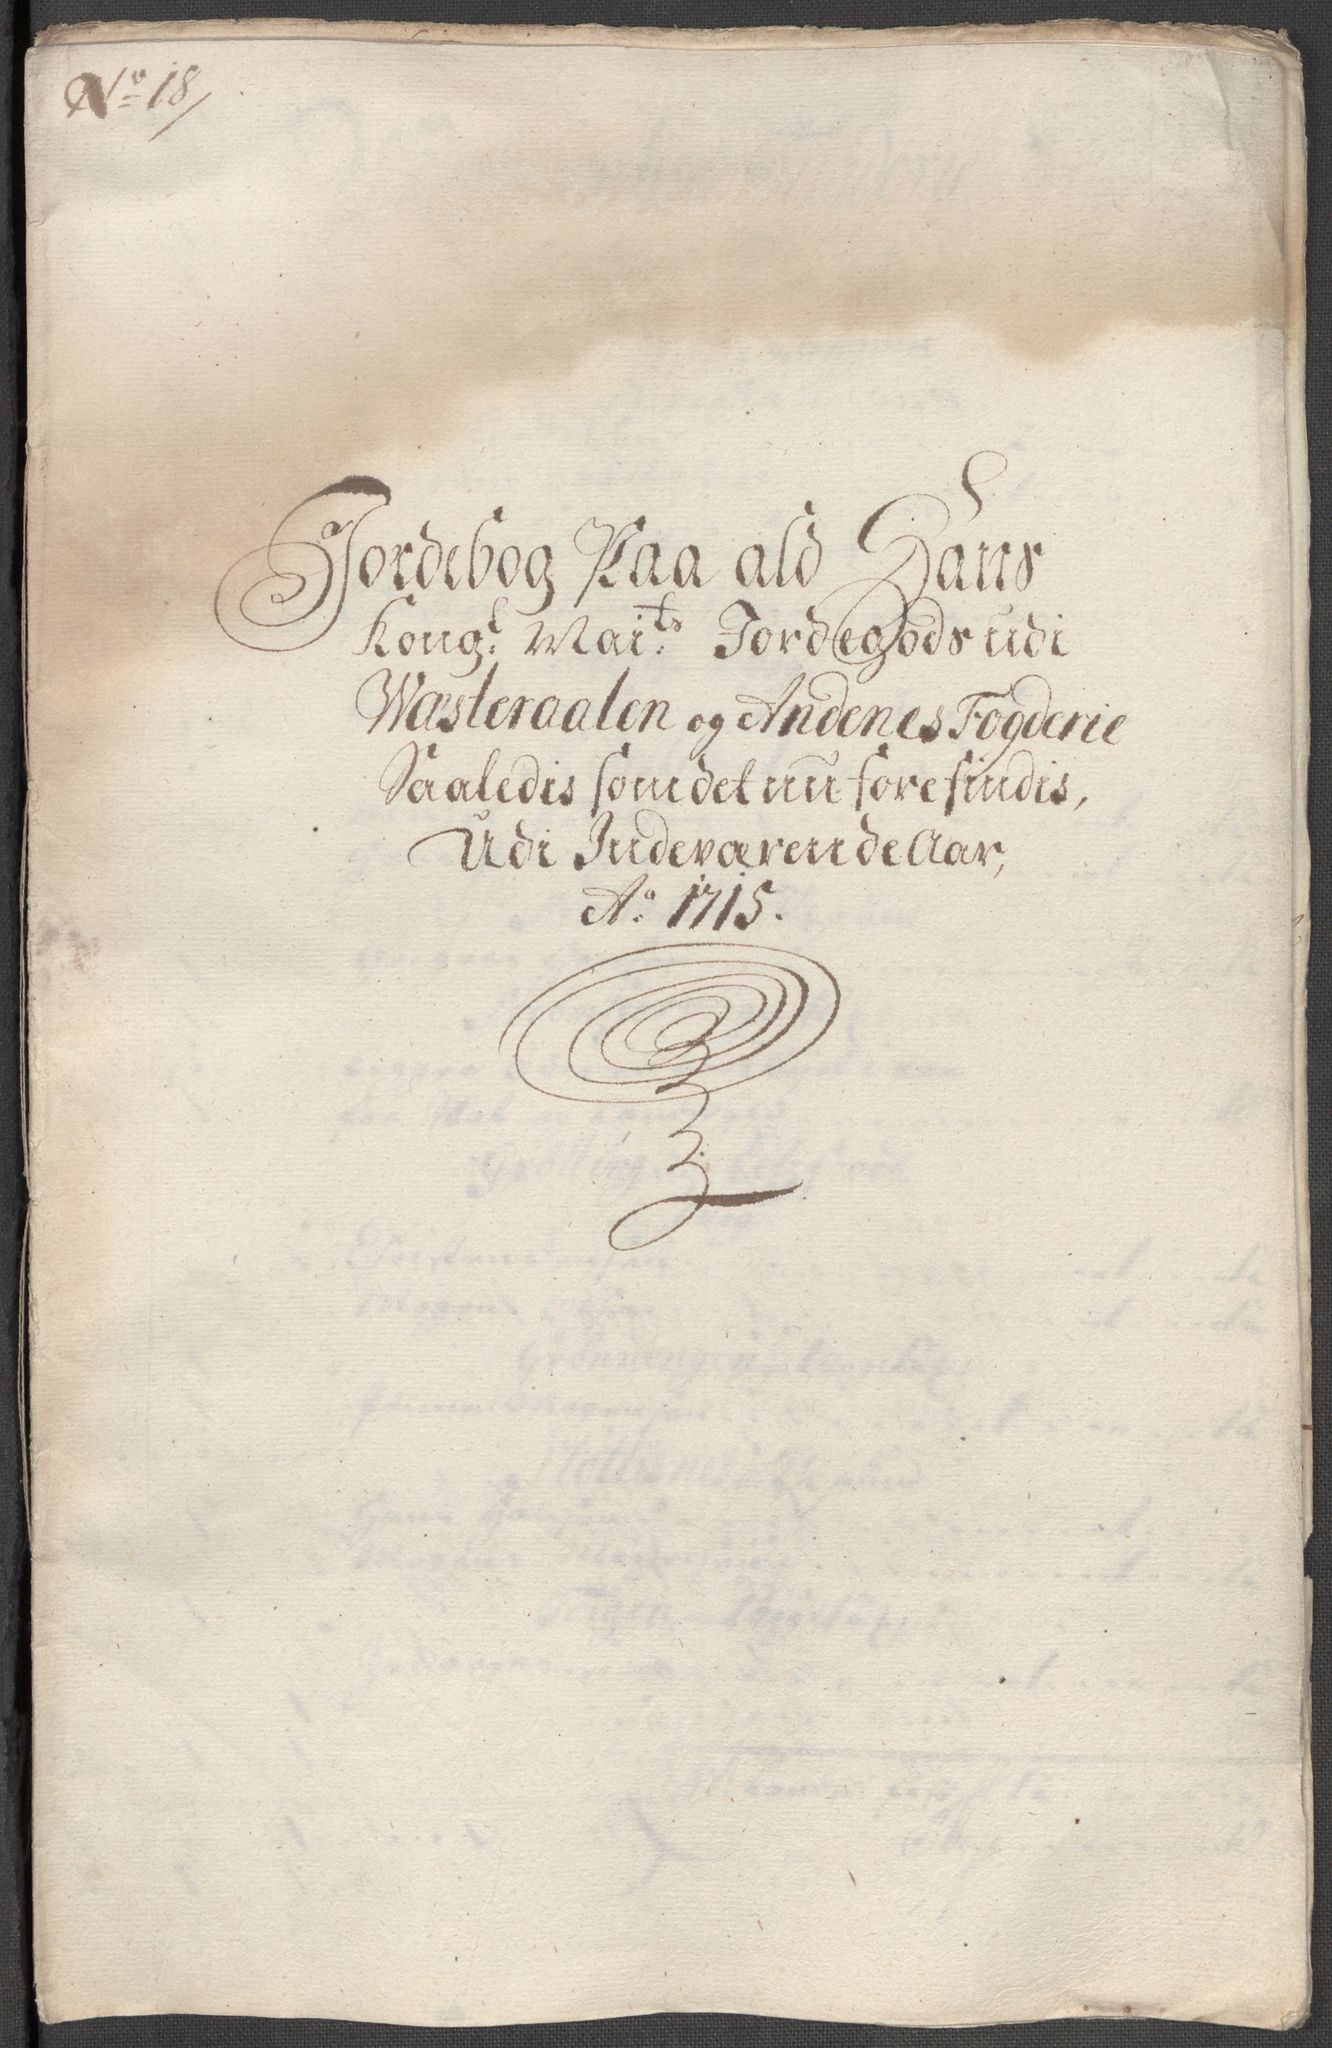 No 18/
Jordebog Paa ald Hans
Kongl. Maits. Jordegods udi
Wæsteraalen og Andenes Fogderie
Saaledis som det nu forefindis,
Udi Indeværende Aar,
Ao. 1715.